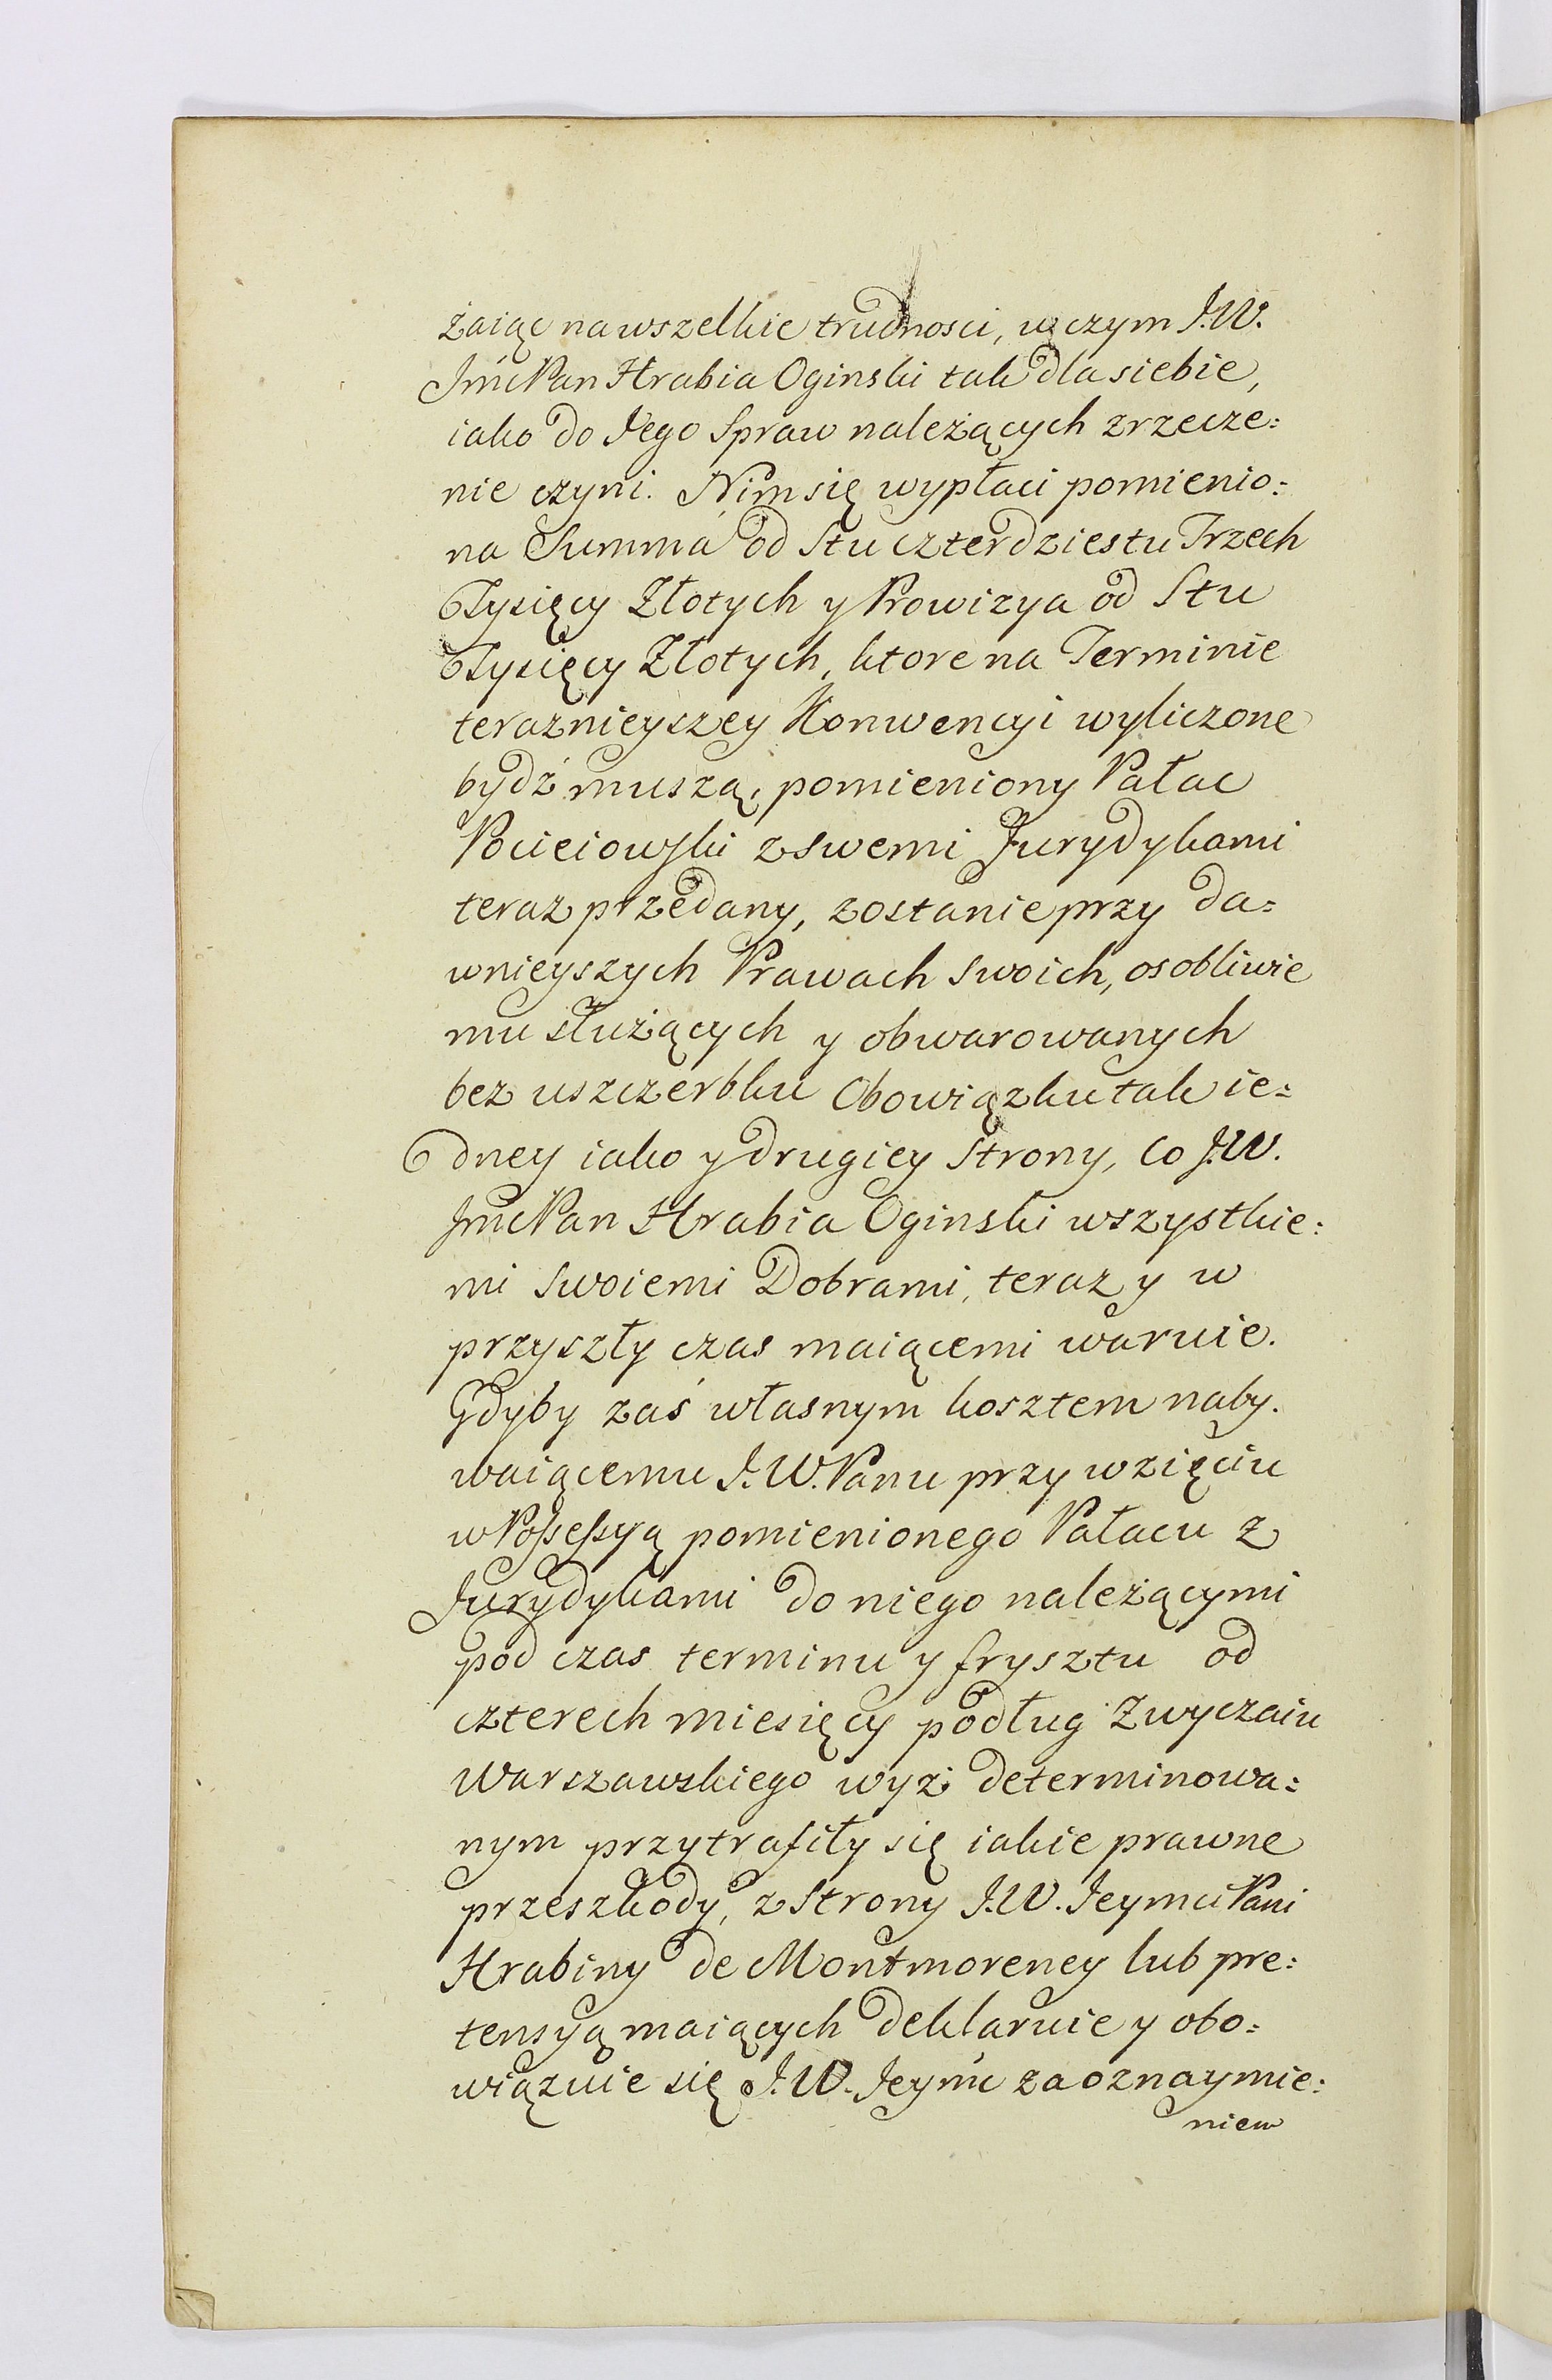 żaiąc na wszelkie trudnosci, w czym J.W.
Jmć Pan Hrabia Oginski tak dla siebie,
iako do Jego Spraw należących zrzecze=
nie czyni. Nim się wypłaci pomienio=
na Summa od Stu czterdziestu Trzech
Tysięcy Złotych y Prowizya od Stu
Tysięcy Złotych, ktore na Terminie
teraznieyszey Konwencyi wyliczone
bydź muszą, pomieniony Pałac
Pocieiowski z swemi Jurydykami
teraz przedany, zostanie przy da=
wnieyszych Prawach swoich, osobliwie
mu służących y obwarowanych
bez uszczerbku Obowiązku tak ie=
dney iako y drugiey Strony, Co J.W.
Jmć Pan Hrabia Oginski wszystkie=
mi swoiemi Dobrami, teraz y w
przyszły czas maiącemi waruie.
Gdyby zaś własnym kosztem naby.
waiącemu J.W. Panu przy wzięciu
w Possessyą pomienionego Pałacu z
Jurydykami do niego należącymi
pod czas terminu y frysztu od
czterech miesięcy podług Zwyczaiu
Warszawskiego wyż determinowa=
nym przytrafiły się iakie prawne
przeszkody, z Strony J.W. Jeymci Pani
Hrabiny de Montmorency lub pre=
tensyą maiących deklaruie y obo=
wiązuie się J.W. Jeymć za oznaymie=
niem